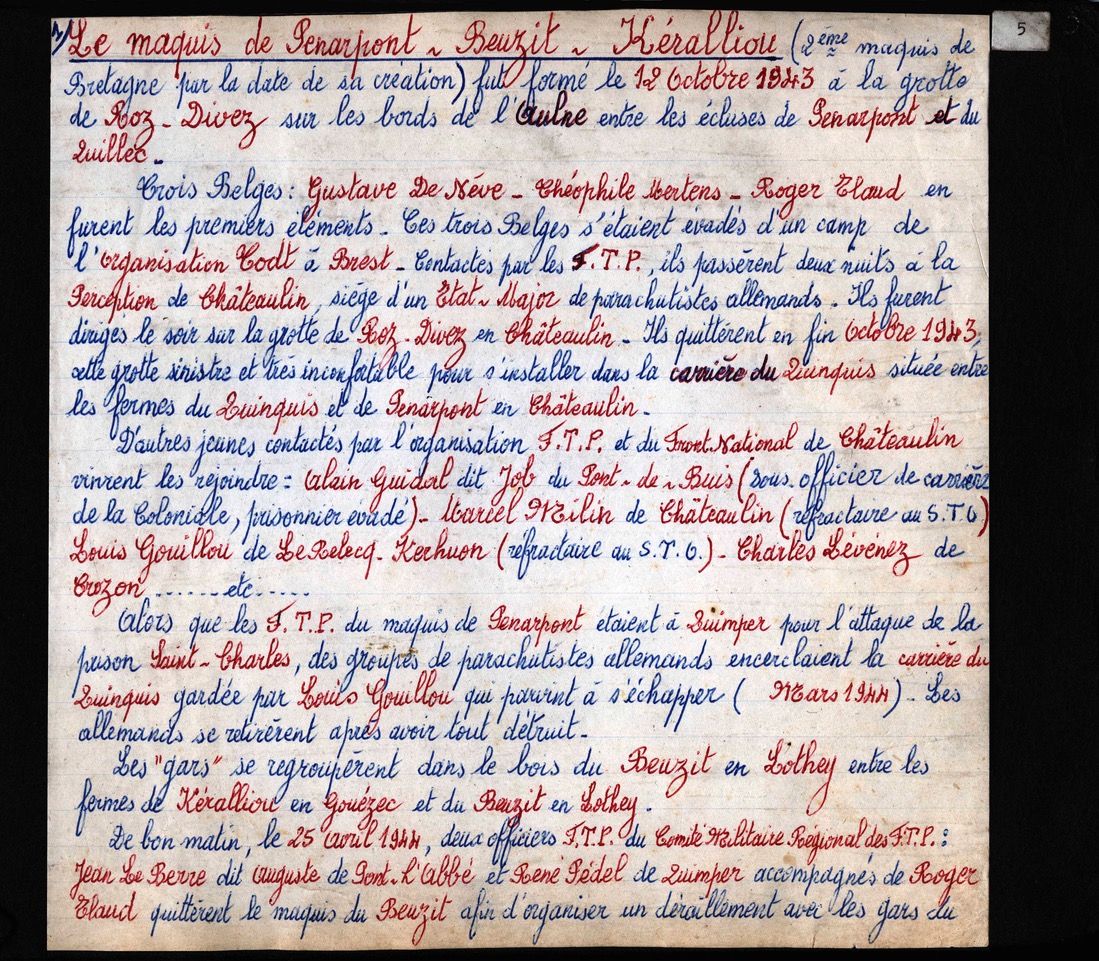 5
1/ Le maquis de Penarpont - Beuzit - Kéralliou (2ème maquis de
Bretagne par la date de sa création) fut formé le 12 Octobre 1943 à la grotte
de Roz - Divez sur les bords de l'Aulne entre les écluses de Penarpont et du
Guillec.
Trois Belges : Gustave De Nève - Théophile Mertens - Roger Elaud en
furent les premiers éléments - Ces trois Belges s'étaient évadés d'un camp de
l'organisation Todt à Brest - Contactés par les F.T.P., ils passèrent deux nuits à la
Perception de Châteaulin, siège d'un Etat-Major de parachutistes allemands. Ils furent
dirigés le soir sur la grotte de Roz - Divez en Châteaulin. Ils quittèrent en fin Octobre 1943,
cette grotte sinistre et très inconfortable pour s'installer dans la carrière du Quinquis située entre
les fermes du Quinquis et de Penarpont en Châteaulin -
D'autres jeunes contactés par l'organisation F.T.P. et du Front National de Châteaulin
vinrent les rejoindre : Alain Guidal dit Job du Pont - de - Buis (Sous. officier de carrière
de la Coloniale, prisonnier évadé) - Marcel Milin de Châteaulin (réfractaire au S.T.O)
Louis Gouillou de Le Relecq - Kerhuon (réfractaire au S.T.O.) - Charles Lévénez de
Crozon ...... etc ......
Alors que les F.T.P. du maquis de Penarpont étaient à Quimper pour l'attaque de la
prison Saint - Charles, des groupes de parachutistes allemands encerclaient la carrière du
Quinquis gardée par Louis Gouillou qui parvint à s'échapper ( Mars 1944) - Les
allemands se retirèrent après avoir tout détruit -
Les "gars" se regroupèrent dans le bois du Beuzit en Lothey entre les
fermes de Kéralliou en Gouézec et du Beuzit en Lothey.
De bon matin, le 25 Avril 1944, deux officiers F.T.P. du Comité Militaire Régional des F.T.P. :
Jean Le Berre dit Auguste de Pont-L'Abbé et René Pédel de Quimper accompagnés de Roger
Elaud quittèrent le maquis du Beuzit afin d'organiser un déraillement avec les gars du